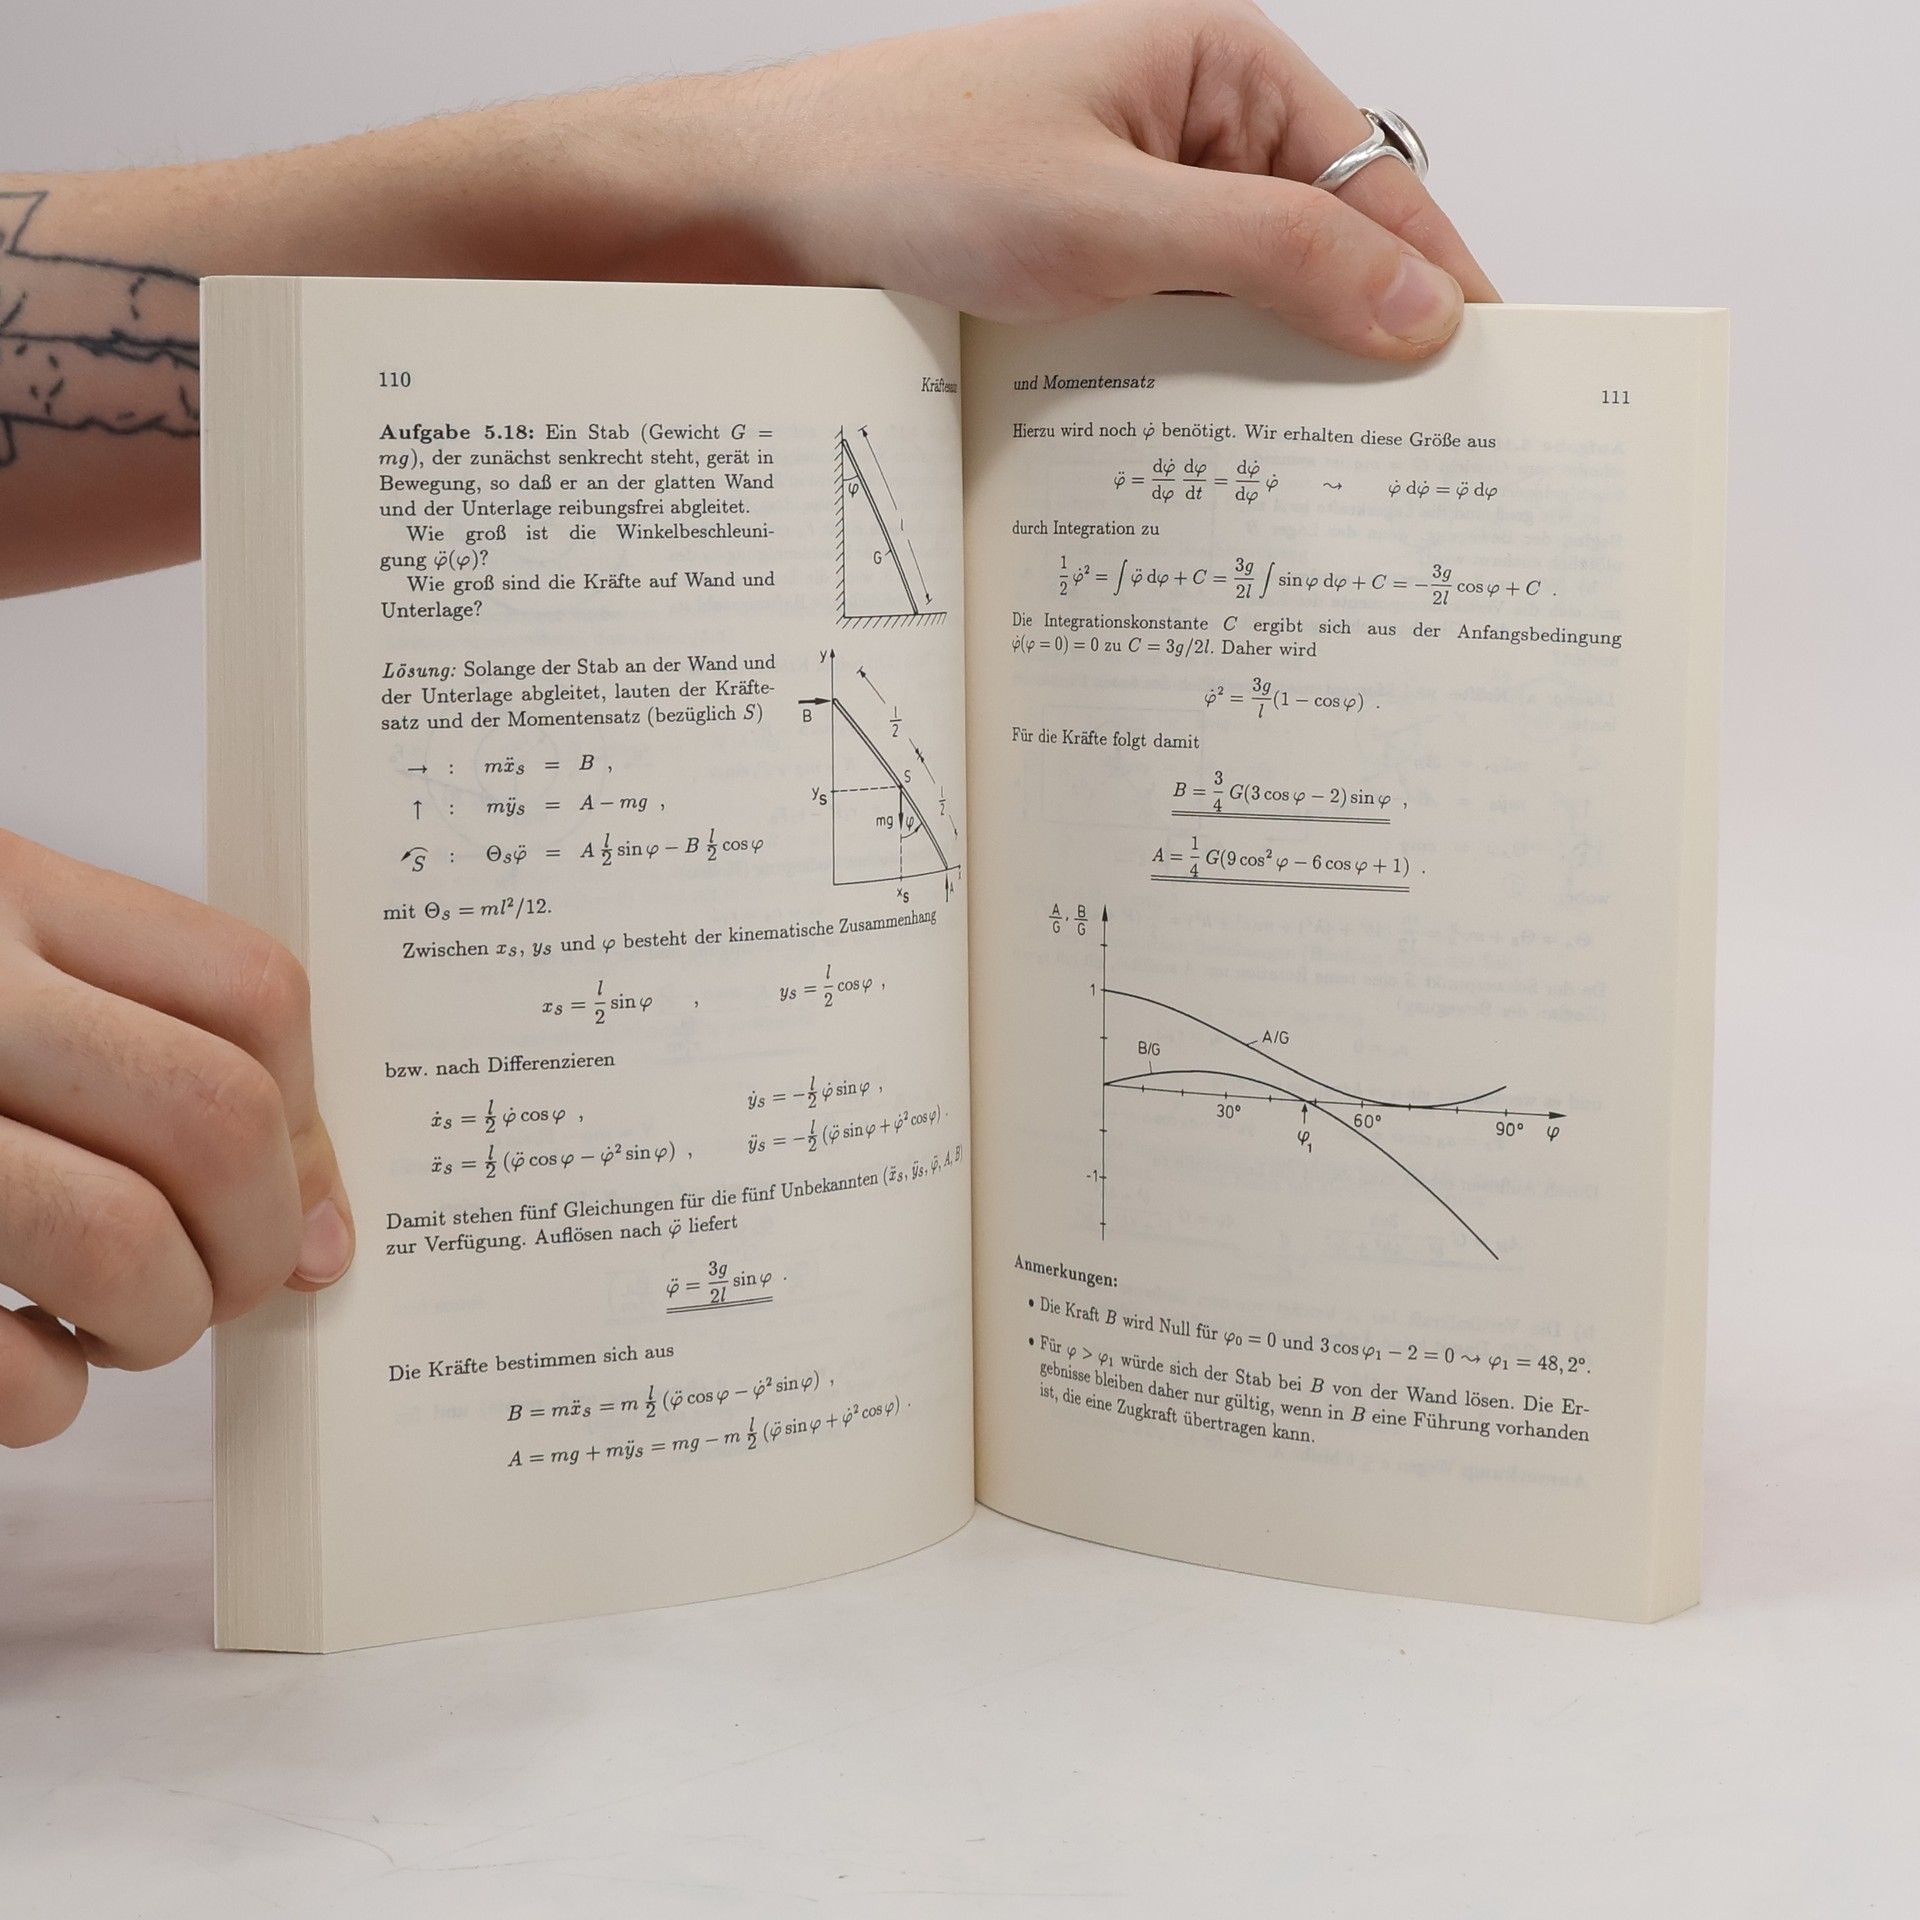 110
Kräftesatz
Aufgabe 5.18: Ein Stab (Gewicht G =
mg), der zunächst senkrecht steht, gerät in
Bewegung, so daß er an der glatten Wand
und der Unterlage reibungsfrei abgleitet.
Wie groß ist die Winkelbeschleuni-
gung φ̈(φ)?
Wie groß sind die Kräfte auf Wand und
Unterlage?
φ
l
G
Lösung: Solange der Stab an der Wand und
der Unterlage abgleitet, lauten der Kräfte-
satz und der Momentensatz (bezüglich S)
→ : mẍ_S = B ,
↑ : mÿ_S = A − mg ,
S : Θ_S φ̈ = A l/2 sin φ − B l/2 cos φ
y
B
l/2
S
y_S
l/2
mg
φ
x_S
A
mit Θ_S = ml²/12.
Zwischen x_S, y_S und φ besteht der kinematische Zusammenhang
x_S = l/2 sin φ , y_S = l/2 cos φ ,
bzw. nach Differenzieren
ẋ_S = l/2 φ̇ cos φ , ẏ_S = −l/2 φ̇ sin φ ,
ẍ_S = l/2 (φ̈ cos φ − φ̇² sin φ) , ÿ_S = −l/2 (φ̈ sin φ + φ̇² cos φ) .
Damit stehen fünf Gleichungen für die fünf Unbekannten (ẍ_S, ÿ_S, φ̈, A, B)
zur Verfügung. Auflösen nach φ̈ liefert
φ̈ = 3g/2l sin φ .
Die Kräfte bestimmen sich aus
B = mẍ_S = m l/2 (φ̈ cos φ − φ̇² sin φ) ,
A = mg + mÿ_S = mg − m l/2 (φ̈ sin φ + φ̇² cos φ) .
und Momentensatz
111
Hierzu wird noch φ̇ benötigt. Wir erhalten diese Größe aus
φ̈ = dφ̇/dφ dφ/dt = dφ̇/dφ φ̇ ⇝ φ̇ dφ̇ = φ̈ dφ
durch Integration zu
1/2 φ̇² = ∫ φ̈ dφ + C = 3g/2l ∫ sin φ dφ + C = −3g/2l cos φ + C .
Die Integrationskonstante C ergibt sich aus der Anfangsbedingung
φ̇(φ = 0) = 0 zu C = 3g/2l. Daher wird
φ̇² = 3g/l (1 − cos φ) .
Für die Kräfte folgt damit
B = 3/4 G(3 cos φ − 2) sin φ ,
A = 1/4 G(9 cos² φ − 6 cos φ + 1) .
A/G , B/G
1
A/G
B/G
30°
φ₁
60°
90°
φ
-1
Anmerkungen:
• Die Kraft B wird Null für φ₀ = 0 und 3 cos φ₁ − 2 = 0 ⇝ φ₁ = 48,2°.
• Für φ > φ₁ würde sich der Stab bei B von der Wand lösen. Die Er-
gebnisse bleiben daher nur gültig, wenn in B eine Führung vorhanden
ist, die eine Zugkraft übertragen kann.